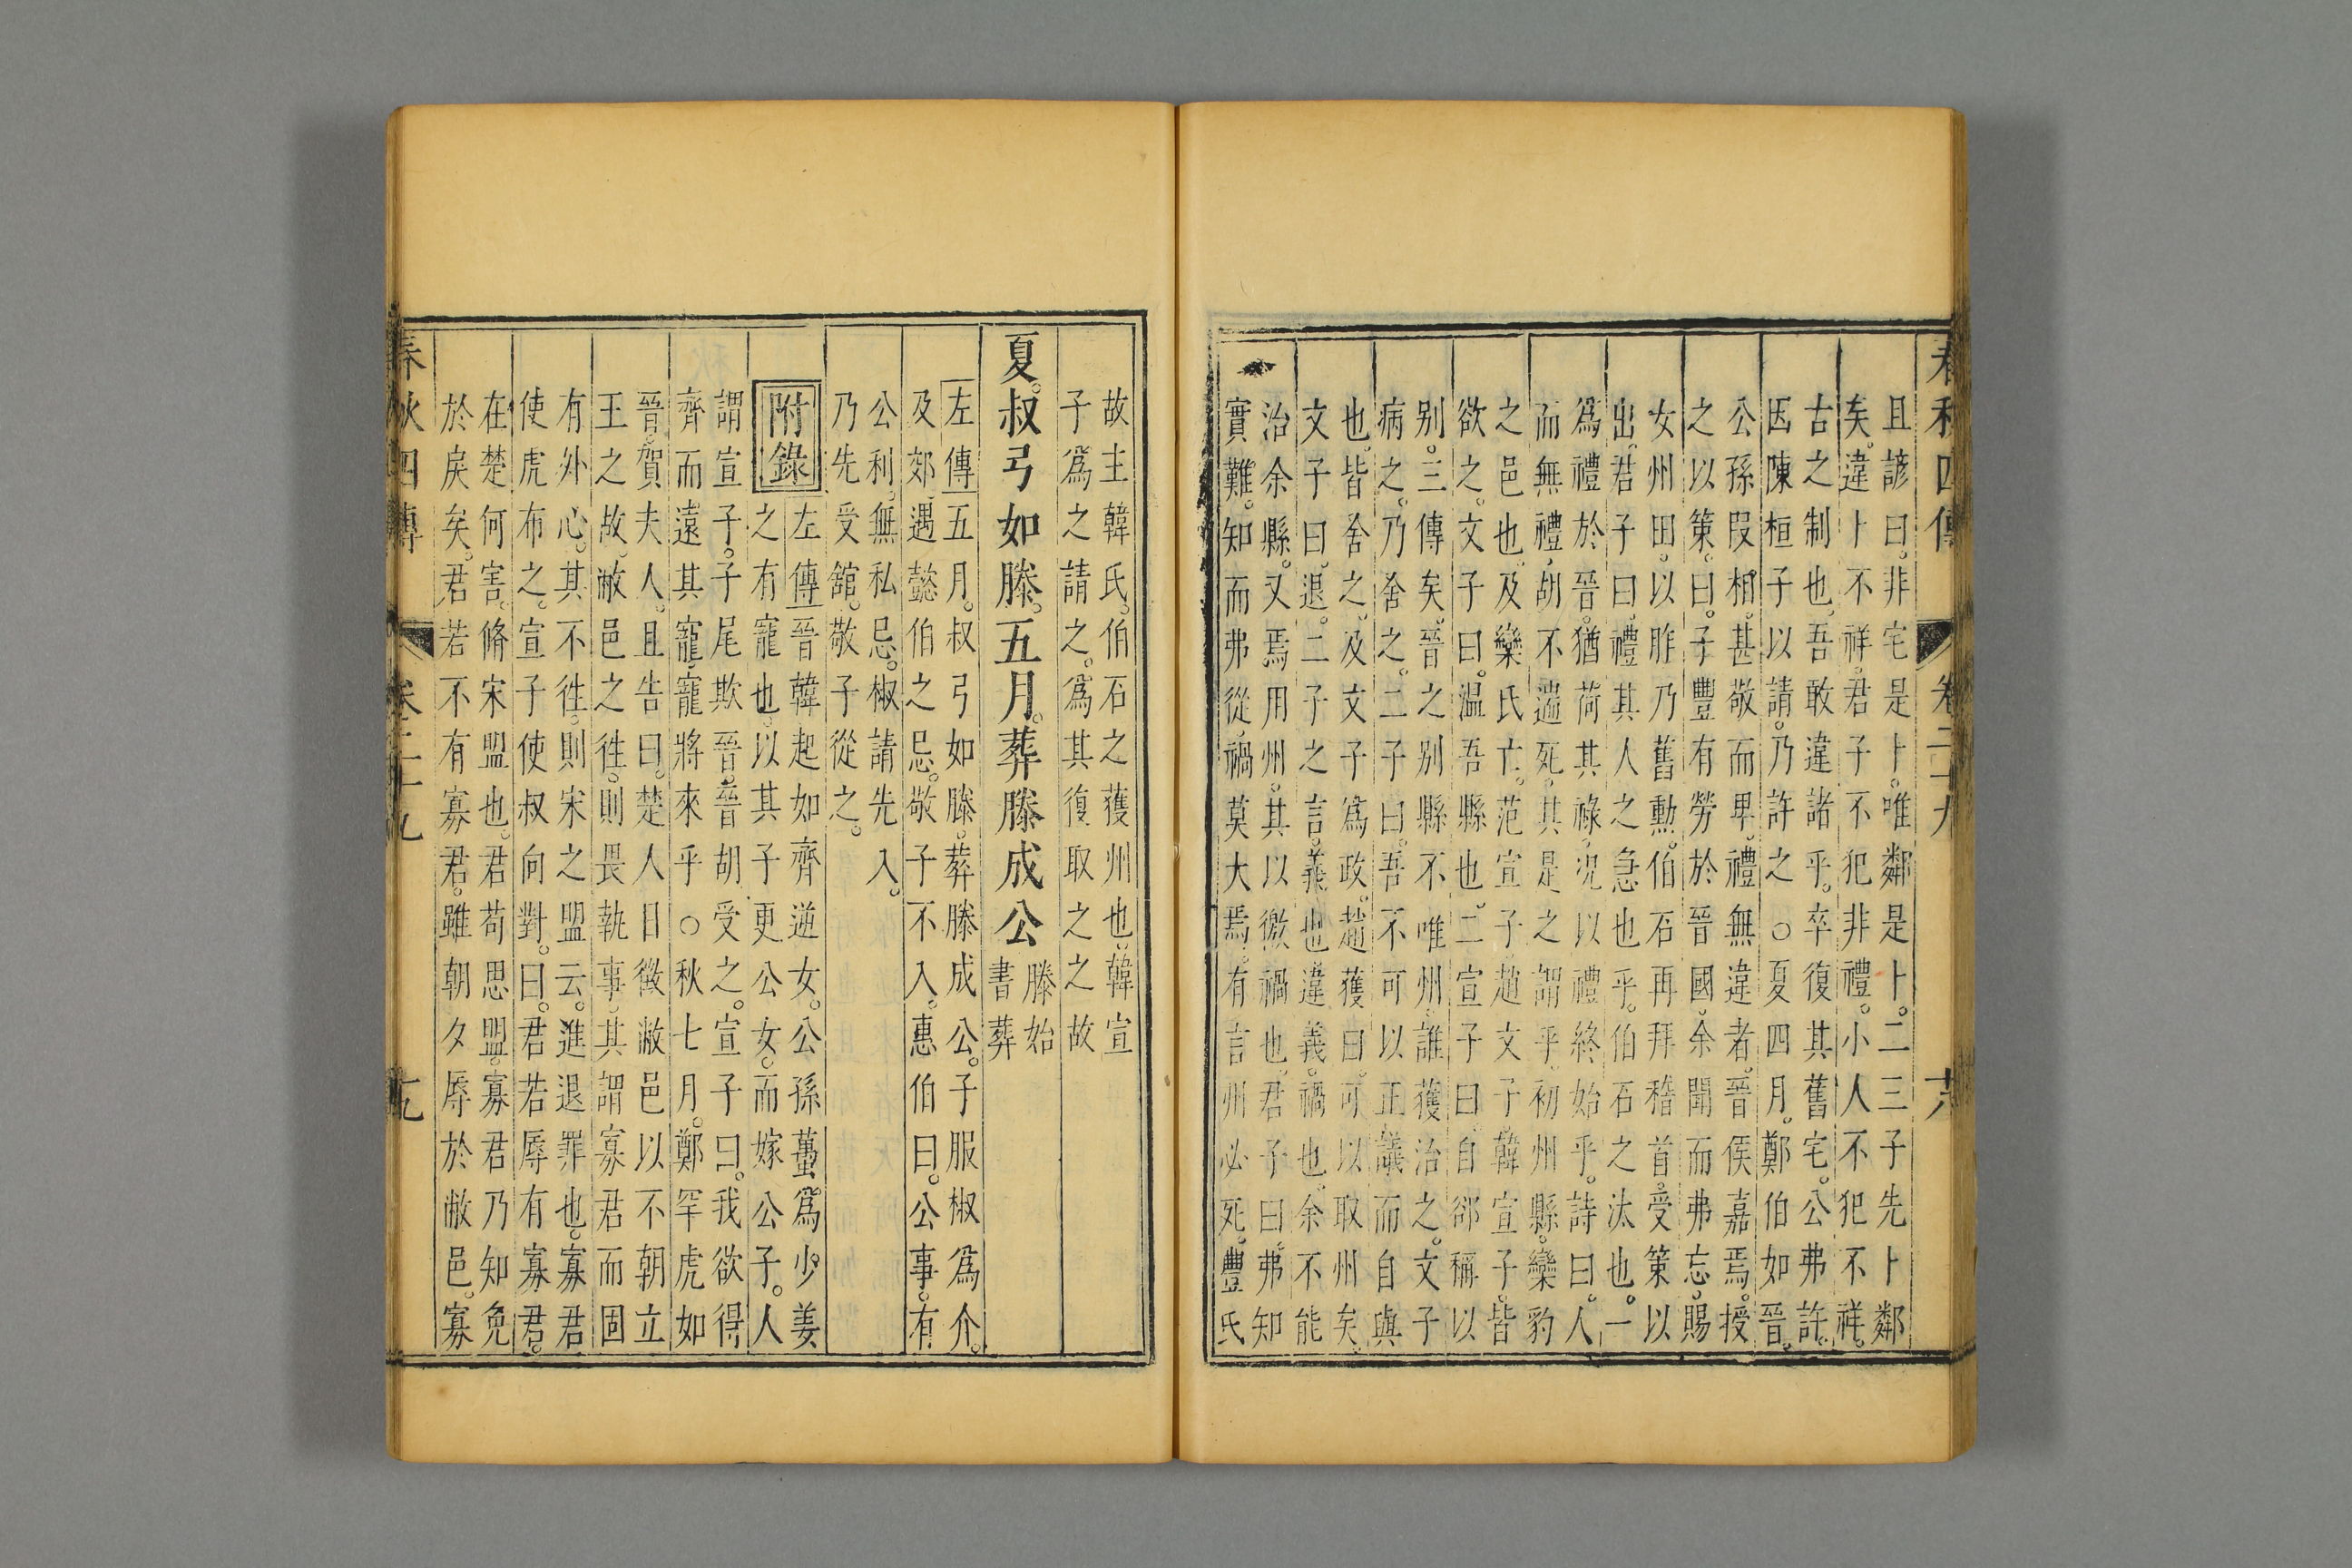 春秋四傳 卷二十九 十六
且諺曰。非宅是卜。唯鄰是卜。二三子先卜鄰
矣。違卜不祥。君子不犯非禮。小人不犯不祥。
古之制也。吾敢違諸乎。卒復其舊宅。公弗許。
因陳桓子以請。乃許之○夏四月。鄭伯如晉。
公孫段相。甚敬而卑。禮無違者。晉侯嘉焉。授
之以策。曰。子豐有勞於晉國。余聞而弗忘。賜
女州田。以胙乃舊勲。伯石再拜稽首。受策以
出。君子曰。禮其人之急也乎。伯石之汰也。一
爲禮於晉。猶荷其祿。況以禮終始乎。詩曰。人
而無禮。胡不遄死。其是之謂乎。初州縣。欒豹
之邑也。及欒氏亡。范宣子。趙文子。韓宣子。皆
欲之。文子曰。溫吾縣也。二宣子曰。自郤稱以
別。三傳矣。晉之別縣不唯州。誰獲治之。文子
病之。乃舍之。二子曰。吾不可以正議而自與
也。皆舍之。及文子爲政。趙獲曰。可以取州矣。
文子曰。退。二子之言。義也。違義。禍也。余不能
治余縣。又焉用州。其以徼禍也。君子曰。弗知
實難。知而弗從。禍莫大焉。有言州必死。豐氏
故主韓氏。伯石之獲州也。韓宣
子爲之請之。爲其復取之之故
夏。叔弓如滕。五月。葬滕成公 滕始書葬
左傳 五月。叔弓如滕。葬滕成公。子服椒爲介。
及郊。遇懿伯之忌。敬子不入。惠伯曰。公事。有
公利。無私忌。椒請先入。
乃先受舘。敬子從之。
附錄 左傳 晉韓起如齊逆女。公孫蠆爲少姜
之有寵也。以其子更公女。而嫁公子。人
謂宣子。子尾欺晉。晉胡受之。宣子曰。我欲得
齊而遠其寵。寵將來乎○秋七月。鄭罕虎如
晉。賀夫人。且告曰。楚人日徵敝邑以不朝立
王之故。敝邑之徃。則畏執事。其謂寡君而固
有外心。其不徃。則宋之盟云。進退罪也。寡君
使虎布之。宣子使叔向對。曰。君若辱有寡君。
在楚何害。脩宋盟也。君苟思盟。寡君乃知免
於戾矣。君若不有寡君。雖朝夕辱於敝邑。寡
春秋四傳 卷二十九 十七